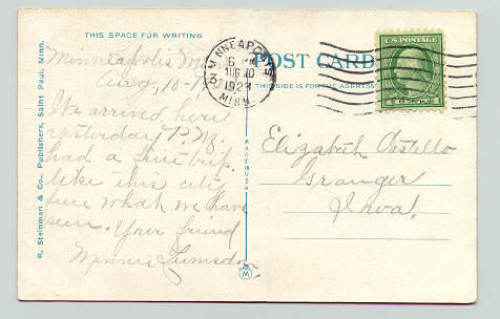 THIS SPACE FOR WRITING
Minneapolis
Aug. 10-
We arrived here
yesterday P.M.
had a fine trip.
like this city
fine what we have
seen. Your friend
Minnie
R. Steinman & Co., Publishers, Saint Paul, Minn.
MADE IN USA
MINNEAPOLIS
6 PM
AUG 10
1923
MINN.
POST CARD
THIS SIDE IS FOR THE ADDRESS
U.S. POSTAGE
Elizabeth Costello
Granger
Iowa.